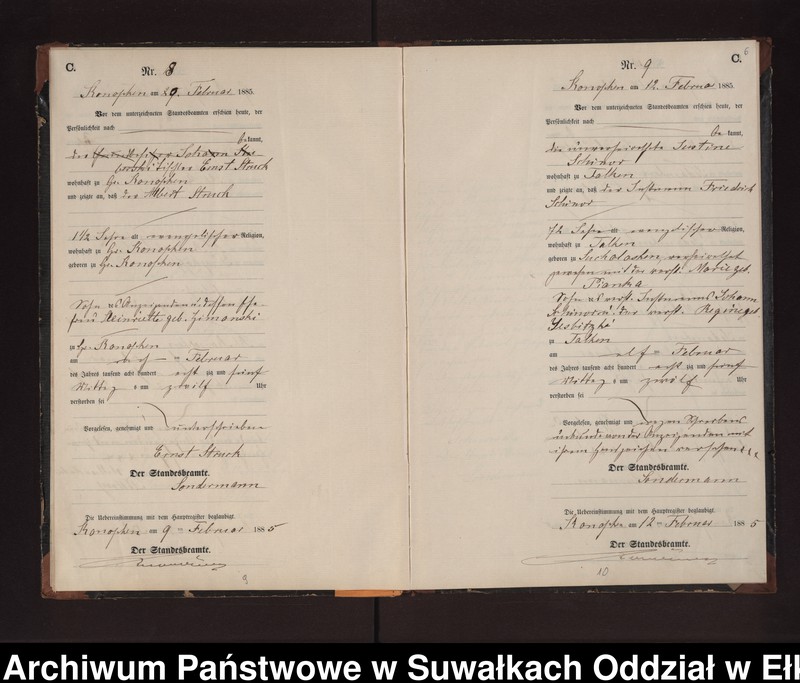 C.
Nr. 8
Konopken am 9. Februar 1885.
Vor dem unterzeichneten Standesbeamten erschien heute, der
Persönlichkeit nach
bekannt,
der
Ernst Struck
wohnhaft zu Gr. Konopken
und zeigte an, daß der Albert Struck
1 1/2 Jahre alt evangelischer Religion,
wohnhaft zu Gr. Konopken
geboren zu Gr. Konopken
Sohn des Anzeigenden u. dessen Ehe
frau Heinriette geb. Zimanski
zu Gr. Konopken
am Februar
des Jahres tausend acht hundert achtzig und fünf
Mittag um zwölf Uhr
verstorben sei
Vorgelesen, genehmigt und unterschrieben
Ernst Struck
Der Standesbeamte.
Sondermann
Die Uebereinstimmung mit dem Hauptregister beglaubigt.
Konopken am 9 Februar 1885
Der Standesbeamte.
9
6
C.
Nr. 9
Konopken am 12. Februar 1885.
Vor dem unterzeichneten Standesbeamten erschien heute, der
Persönlichkeit nach
bekannt,
die unverehelichte
wohnhaft zu Talken
und zeigte an, daß der Instmann Friedrich
72 Jahre alt evangelischer Religion,
wohnhaft zu Talken
geboren zu verheirathet
gewesen mit der verst. Marie geb.
Sohn des verst. Instmanns Johann
der verst. Regine geb.
zu Talken
am elf Februar
des Jahres tausend acht hundert achtzig und fünf
Mittag um zwölf Uhr
verstorben sei
Vorgelesen, genehmigt und wegen Schreibens
unkunde von der Anzeigenden mit
ihrem Handzeichen versehen
Der Standesbeamte.
Sondermann
Die Uebereinstimmung mit dem Hauptregister beglaubigt.
Konopken am 12 Februar 1885
Der Standesbeamte.
10
Archiwum Państwowe w Suwałkach Oddział w Eł